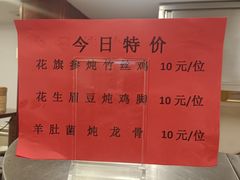 今日特价
花旗参炖竹丝鸡 10元/位
花生眉豆炖鸡脚 10元/位
羊肚菌炖龙骨 10元/位